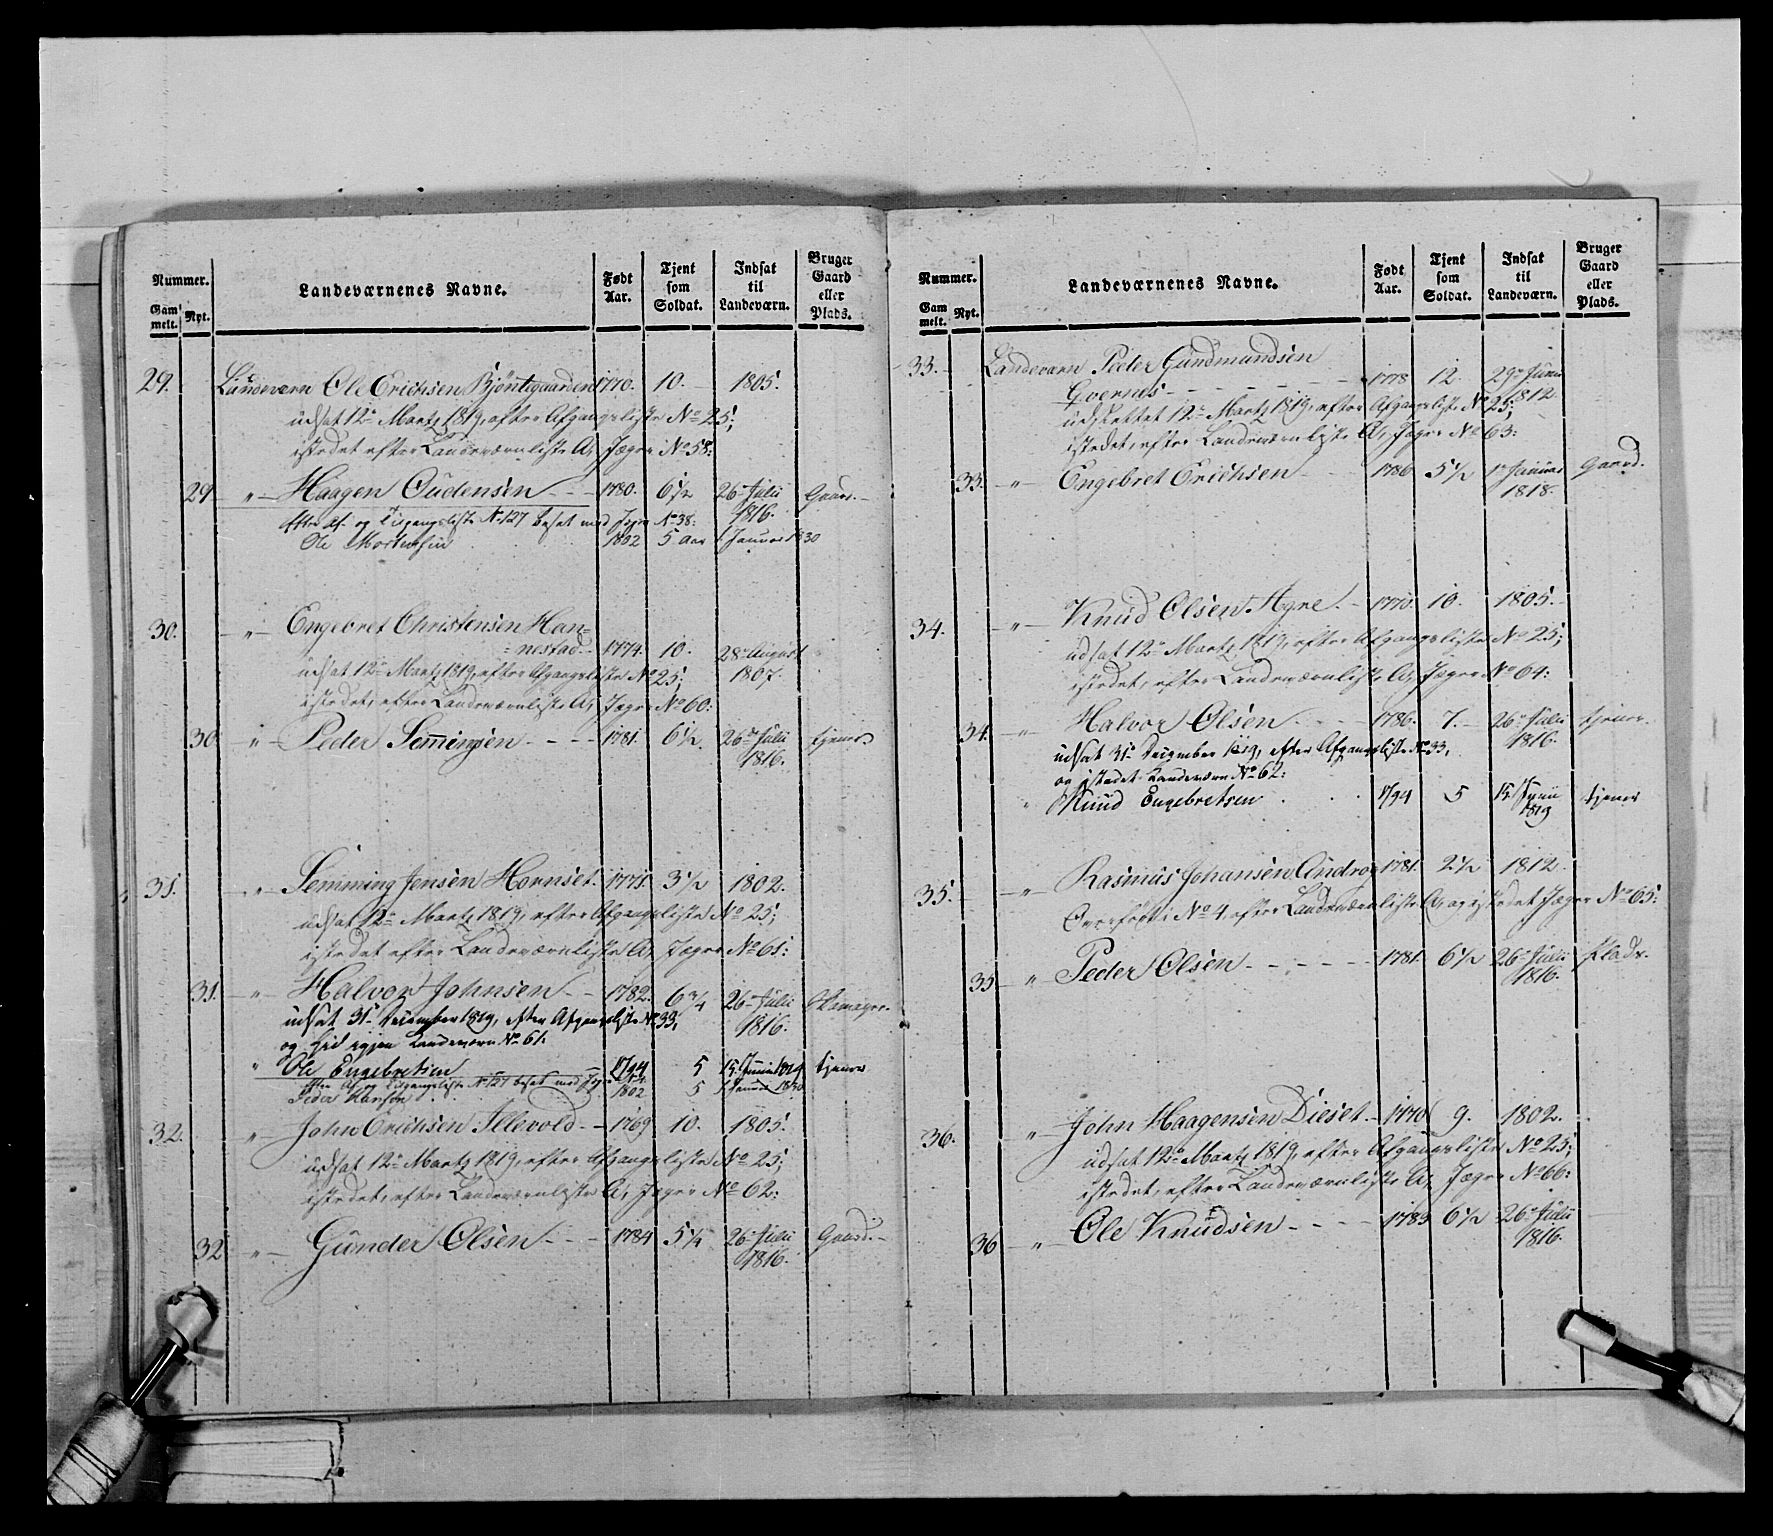 Nummer.
Gam melt. Nyt.
Landeværnenes Navne.
Født Aar.
Tjent som Soldat.
Indsat til Landeværn.
Bruger Gaard eller Plads.
29. Landeværn Ole Erichsen Kjöntegaarden 1770. 10. 1805.
udsat 12te Martz 1819, efter Afgangsliste No 25;
istedet efter Landeværnliste A, Jæger No 58:
29 " Haagen Oudensen 1780. 6 1/2 26de Julii 1816. Gaard.
Efter Af. og Tilgangsliste No 127 besat med Jæger No 38:
Ole Mortensen 1802 5 Aar 1 Januar 1830
30. " Engebret Christensen Han=
=nestad 1774. 10. 28de August 1807.
udsat 12te Martz 1819, efter Afgangsliste No 25;
istedet, efter Landeværnliste A, Jæger No 60:
30 " Peder Semingsen 1781. 6 1/2 26de Julii 1816. tjener
31. " Semming Jensen Hornset. 1771. 3 1/2 1802.
udsat 12te Martz 1819, efter Afgangsliste No 25;
istedet efter Landeværnliste A, Jæger No 61:
31. " Halvor Johnsen 1782. 6 3/4 26de Julii 1816.
udsat 31te December 1819, efter Afgangsliste No 33,
og hid igjen Landeværn No 61:
" Ole Engebretsen 1794 5 15 Junii 1819 tjener
Efter Af. og Tilgangsliste No 127 besat med Jæger
Peder Hansen 1802 5 1 Januar 1830
32. " John Erichsen Illevold 1769 10. 1805.
udsat 12te Martz 1819, efter Afgangsliste No 25;
istedet, efter Landeværnliste A, Jæger No 62:
32 " Gunder Olsen 1784 5 1/4 26de Julii 1816. Gaard.
Nummer.
Gam melt. Nyt.
Landeværnenes Navne.
Født Aar.
Tjent som Soldat.
Indsat til Landeværn.
Bruger Gaard eller Plads.
33. Landeværn Peder Gundmundsen
Gvernes 1778 12. 29de Junii 1812.
udslettet 12te Martz 1819, efter Afgangsliste No 25;
istedet, efter Landeværnliste A, Jæger No 63:
33. " Engebret Erichsen 1786 5 1/2 1te Januar 1818. Gaard.
34. " Knud Olsen Hgre. 1770. 10. 1805.
udsat 12te Martz 1819, efter Afgangsliste No 25;
istedet, efter Landeværnliste A, Jæger No 64:
34. " Halvor Olsen 1786. 7. 26de Julii 1816. tjener.
udsat 31te December 1819, efter Afgangsliste No 33,
og istedet Landeværn No 62:
" Knud Engebretsen 1794 5 15 Junii 1819 tjener
35. " Rasmus Johansen Andro 1781. 2 1/2 1812.
Overført i No 4 efter Landeværnliste A, og istedet Jæger No 65:
35 " Peder Olsen 1781. 6 1/2 26de Julii 1816. Plads.
36. " John Haagensen Dieset 1770 9. 1802.
udsat 12te Martz 1819, efter Afgangsliste No 25;
istedet, efter Landeværnliste A, Jæger No 66:
36 " Ole Knudsen 1783 6 1/2 26de Julii 1816.